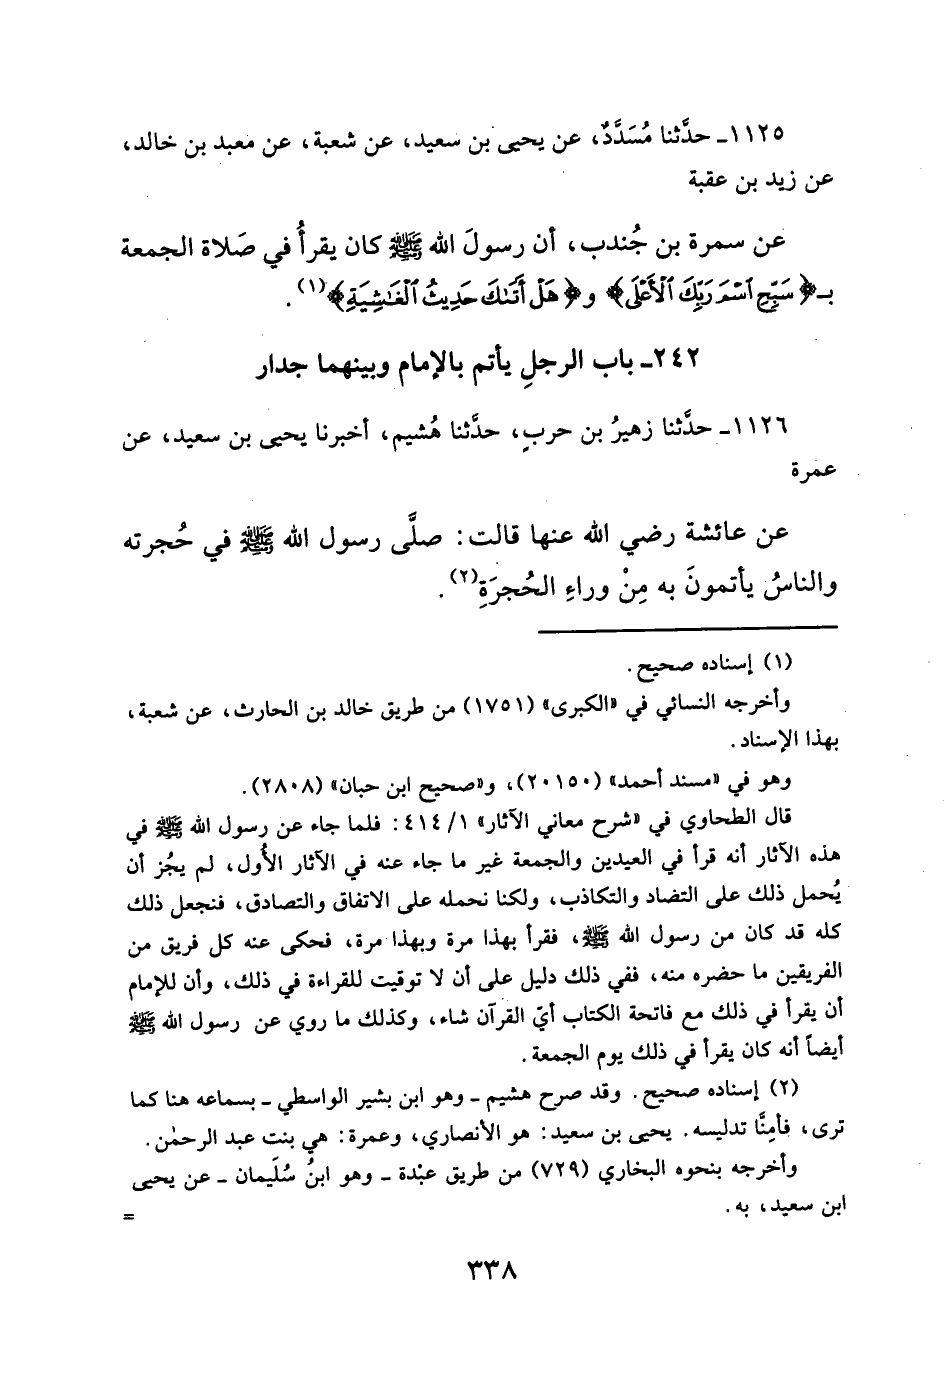 ١١٢٥ـ حدَّثنا مُسَدَّدٌ، عن يحيى بن سعيد، عن شعبة، عن معبد بن خالد،
عن زيد بن عقبة
عن سمرة بن جُندب، أن رسولَ الله ﷺ كان يقرأُ في صَلاة الجمعة
بـ﴿سَبِّحِ ٱسْمَ رَبِّكَ ٱلْأَعْلَى﴾ و﴿هَلْ أَتَىٰكَ حَدِيثُ ٱلْغَٰشِيَةِ﴾(١).
٢٤٢ـ باب الرجلِ يأتم بالإمام وبينهما جدار
١١٢٦ـ حدَّثنا زهيرُ بن حربٍ، حدَّثنا هُشيم، أخبرنا يحيى بن سعيد، عن
عمرة
عن عائشة رضي الله عنها قالت: صلَّى رسول الله ﷺ في حُجرته
والناسُ يأتمونَ به مِنْ وراءِ الحُجرَةِ(٢).
(١) إسناده صحيح.
وأخرجه النسائي في «الكبرى» (١٧٥١) من طريق خالد بن الحارث، عن شعبة،
بهذا الإسناد.
وهو في «مسند أحمد» (٢٠١٥٠)، و«صحيح ابن حبان» (٢٨٠٨).
قال الطحاوي في «شرح معاني الآثار» ١/٤١٤: فلما جاء عن رسول الله ﷺ في
هذه الآثار أنه قرأ في العيدين والجمعة غير ما جاء عنه في الآثار الأُول، لم يجُز أن
يُحمل ذلك على التضاد والتكاذب، ولكنا نحمله على الاتفاق والتصادق، فنجعل ذلك
كله قد كان من رسول الله ﷺ، فقرأ بهذا مرة وبهذا مرة، فحكى عنه كل فريق من
الفريقين ما حضره منه، ففي ذلك دليل على أن لا توقيت للقراءة في ذلك، وأن للإمام
أن يقرأ في ذلك مع فاتحة الكتاب أيّ القرآن شاء، وكذلك ما روي عن رسول الله ﷺ
أيضاً أنه كان يقرأ في ذلك يوم الجمعة.
(٢) إسناده صحيح. وقد صرح هشيم ـ وهو ابن بشير الواسطي ـ بسماعه هنا كما
ترى، فأمِنَّا تدليسه. يحيى بن سعيد: هو الأنصاري، وعمرة: هي بنت عبد الرحمٰن.
وأخرجه بنحوه البخاري (٧٢٩) من طريق عبْدة ـ وهو ابنُ سُلَيمان ـ عن يحيى
ابن سعيد، به. =
٣٣٨